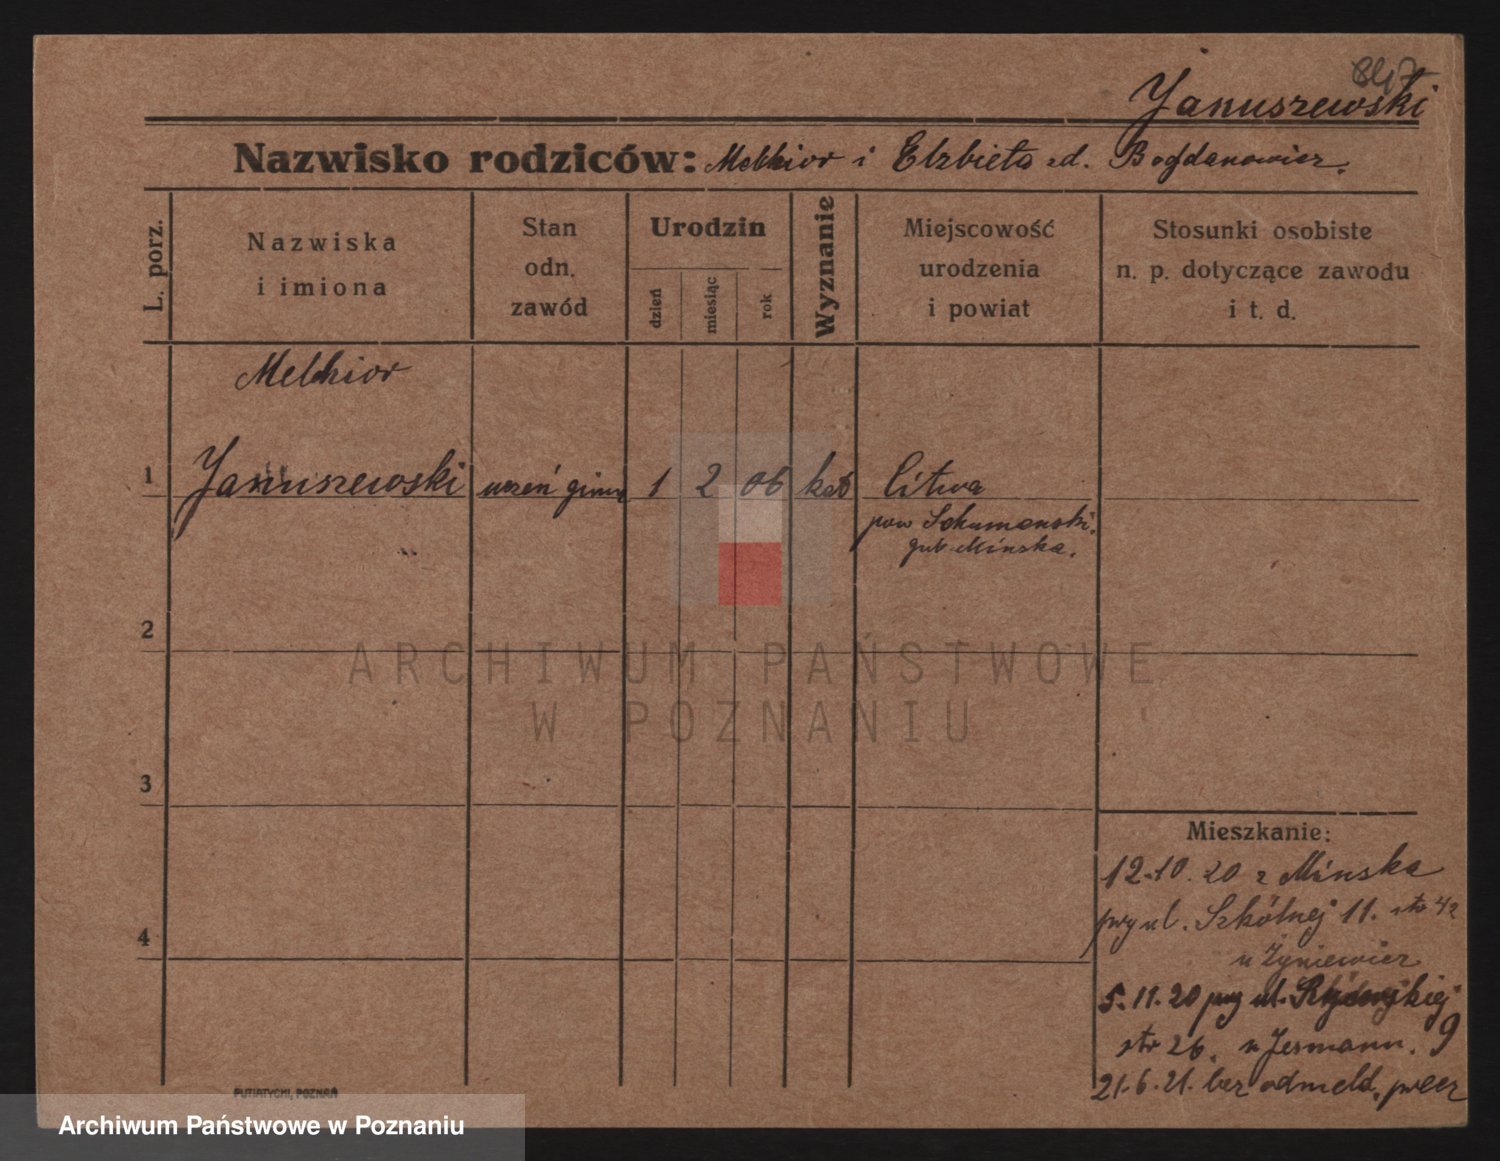 847
Januszewski
Nazwisko rodziców: Melchior i Elzbieta zd. Bogdanowicz.
L. porz.
Nazwiska
i imiona
Stan
odn.
zawód
Urodzin
dzień
miesiąc
rok
Wyznanie
Miejscowość
urodzenia
i powiat
Stosunki osobiste
n. p. dotyczące zawodu
i t. d.
Melchior
1 Januszewski uczeń gimn 1 2 06 kat Litwa
pow
gub Mińska.
2
ARCHIWUM PAŃSTWOWE
W POZNANIU
3
4
Mieszkanie:
12.10.20 z Mińska
przy ul. Szkólnej 11. str 42
u Żyniewicz
5.11.20 przy ul.
str 26. u Jermann. 9
21.6.21. bez odmeld. precz
PUTIATYCKI, POZNAŃ
Archiwum Państwowe w Poznaniu